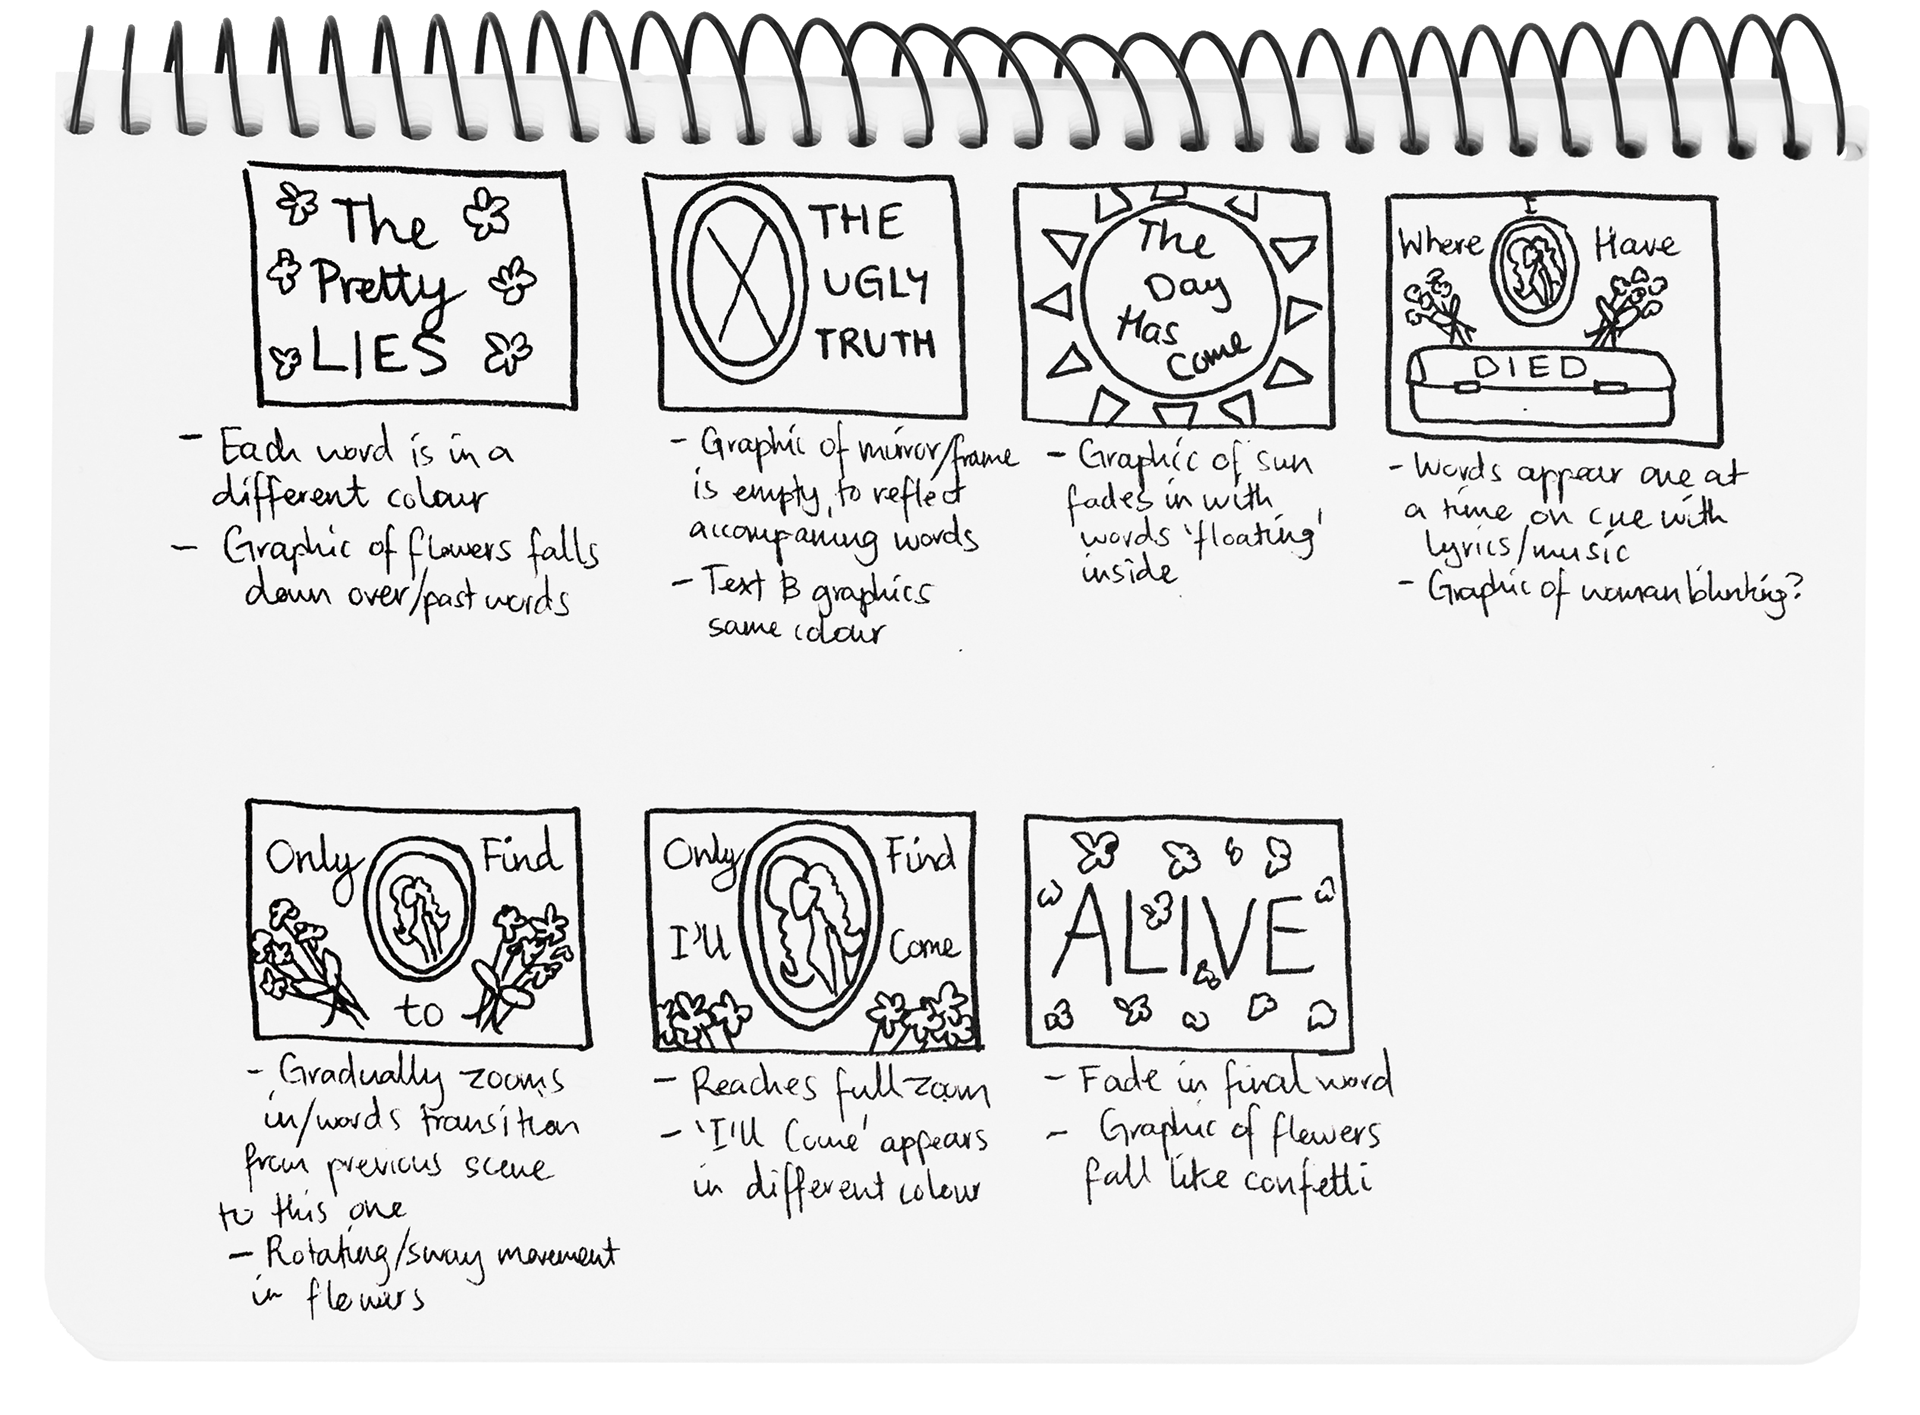 The
Pretty
LIES
- Each word is in a
different colour
- Graphic of flowers falls
down over/past words
THE
UGLY
TRUTH
- Graphic of mirror/frame
is empty, to reflect
accompanying words
- Text B graphics
same colour
The
Day
Has
Come
- Graphic of sun
fades in with
words 'floating'
inside
I
Where Have
DIED
- Words appear one at
a time on cue with
lyrics/music
- Graphic of woman blinking?
Only Find
to
- Gradually zooms
in/words transition
from previous scene
to this one
- Rotating/sway movement
in flowers
Only Find
I'll Come
- Reaches full zoom
- 'I'll Come' appears
in different colour
ALIVE
- Fade in final word
- Graphic of flowers
fall like confetti